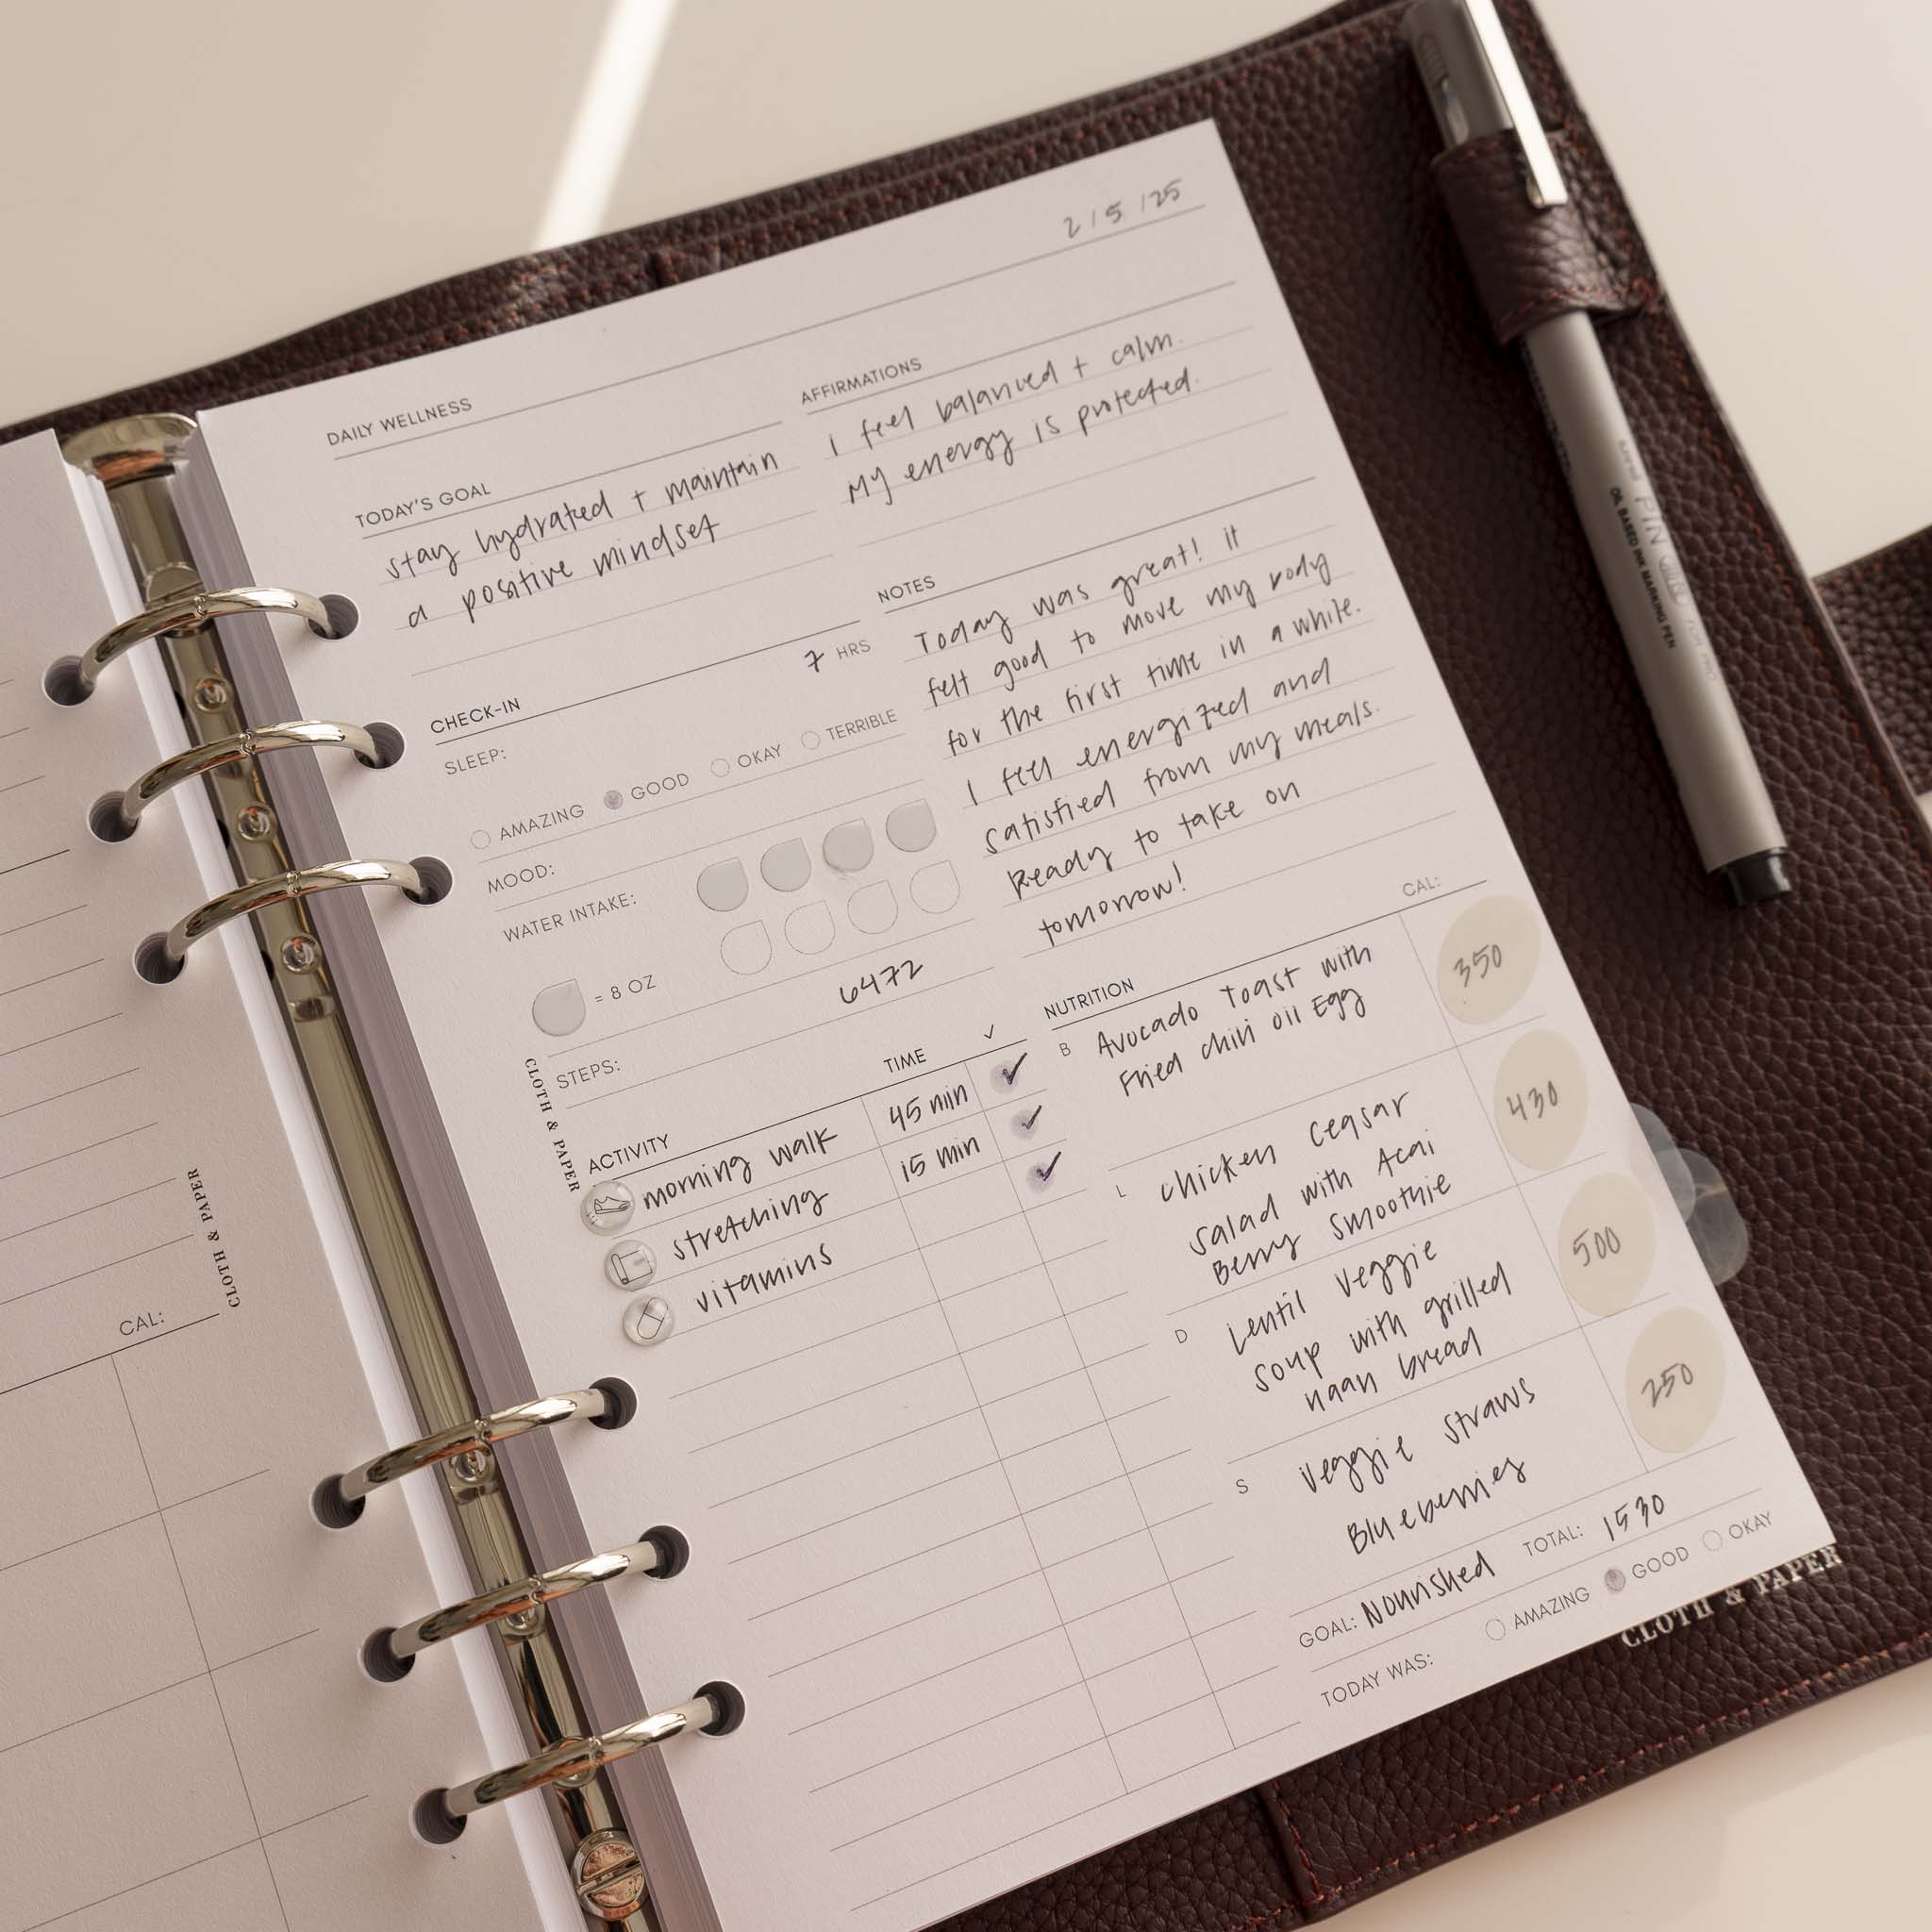 2/5/25
DAILY WELLNESS
TODAY'S GOAL
stay hydrated + maintain
a positive mindset
AFFIRMATIONS
I feel balanced + calm.
My energy is protected.
CHECK-IN
SLEEP: 7 HRS
AMAZING GOOD OKAY TERRIBLE
MOOD:
WATER INTAKE:
= 8 OZ
STEPS: 6472
NOTES
Today was great! it
felt good to move my body
for the first time in a while.
I feel energized and
satisfied from my meals.
Ready to take on
tomorrow!
ACTIVITY TIME ✓
morning walk 45 min ✓
stretching 15 min ✓
vitamins ✓
NUTRITION CAL:
B Avocado Toast with 350
Fried chili oil Egg
L chicken ceasar 430
salad with Acai
Berry Smoothie
D Lentil Veggie 500
soup with grilled
naan bread
S Veggie Straws 250
Blueberries
GOAL: Nourished TOTAL: 1530
TODAY WAS: AMAZING GOOD OKAY
CLOTH & PAPER
CLOTH & PAPER
CAL:
CLOTH & PAPER
PIN
OIL BASED INK MARKING PEN